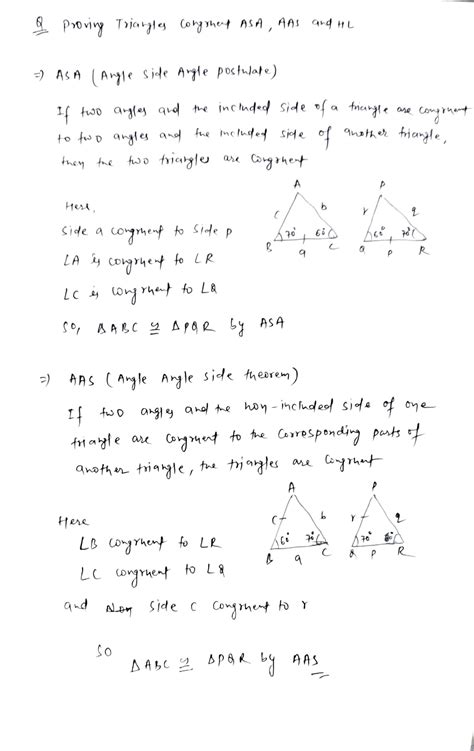 Q Proving Triangles Congruent ASA, AAS and HL
=> ASA (Angle Side Angle postulate)
If two angles and the included side of a triangle are congruent
to two angles and the included side of another triangle,
then the two triangles are congruent
A P
Here,
c b r q
Side a congruent to Side p
70° 60° 60° 70°
B a C Q p R
∠A is congruent to ∠R
∠C is congruent to ∠Q
So, ΔABC ≅ ΔPQR by ASA
=> AAS (Angle Angle Side theorem)
If two angles and the non-included side of one
triangle are congruent to the corresponding parts of
another triangle, the triangles are congruent
A P
Here
c b r q
∠B congruent to ∠R
60° 70° 70° 60°
B a C Q p R
∠C congruent to ∠Q
and Side c congruent to r
So
ΔABC ≅ ΔPQR by AAS